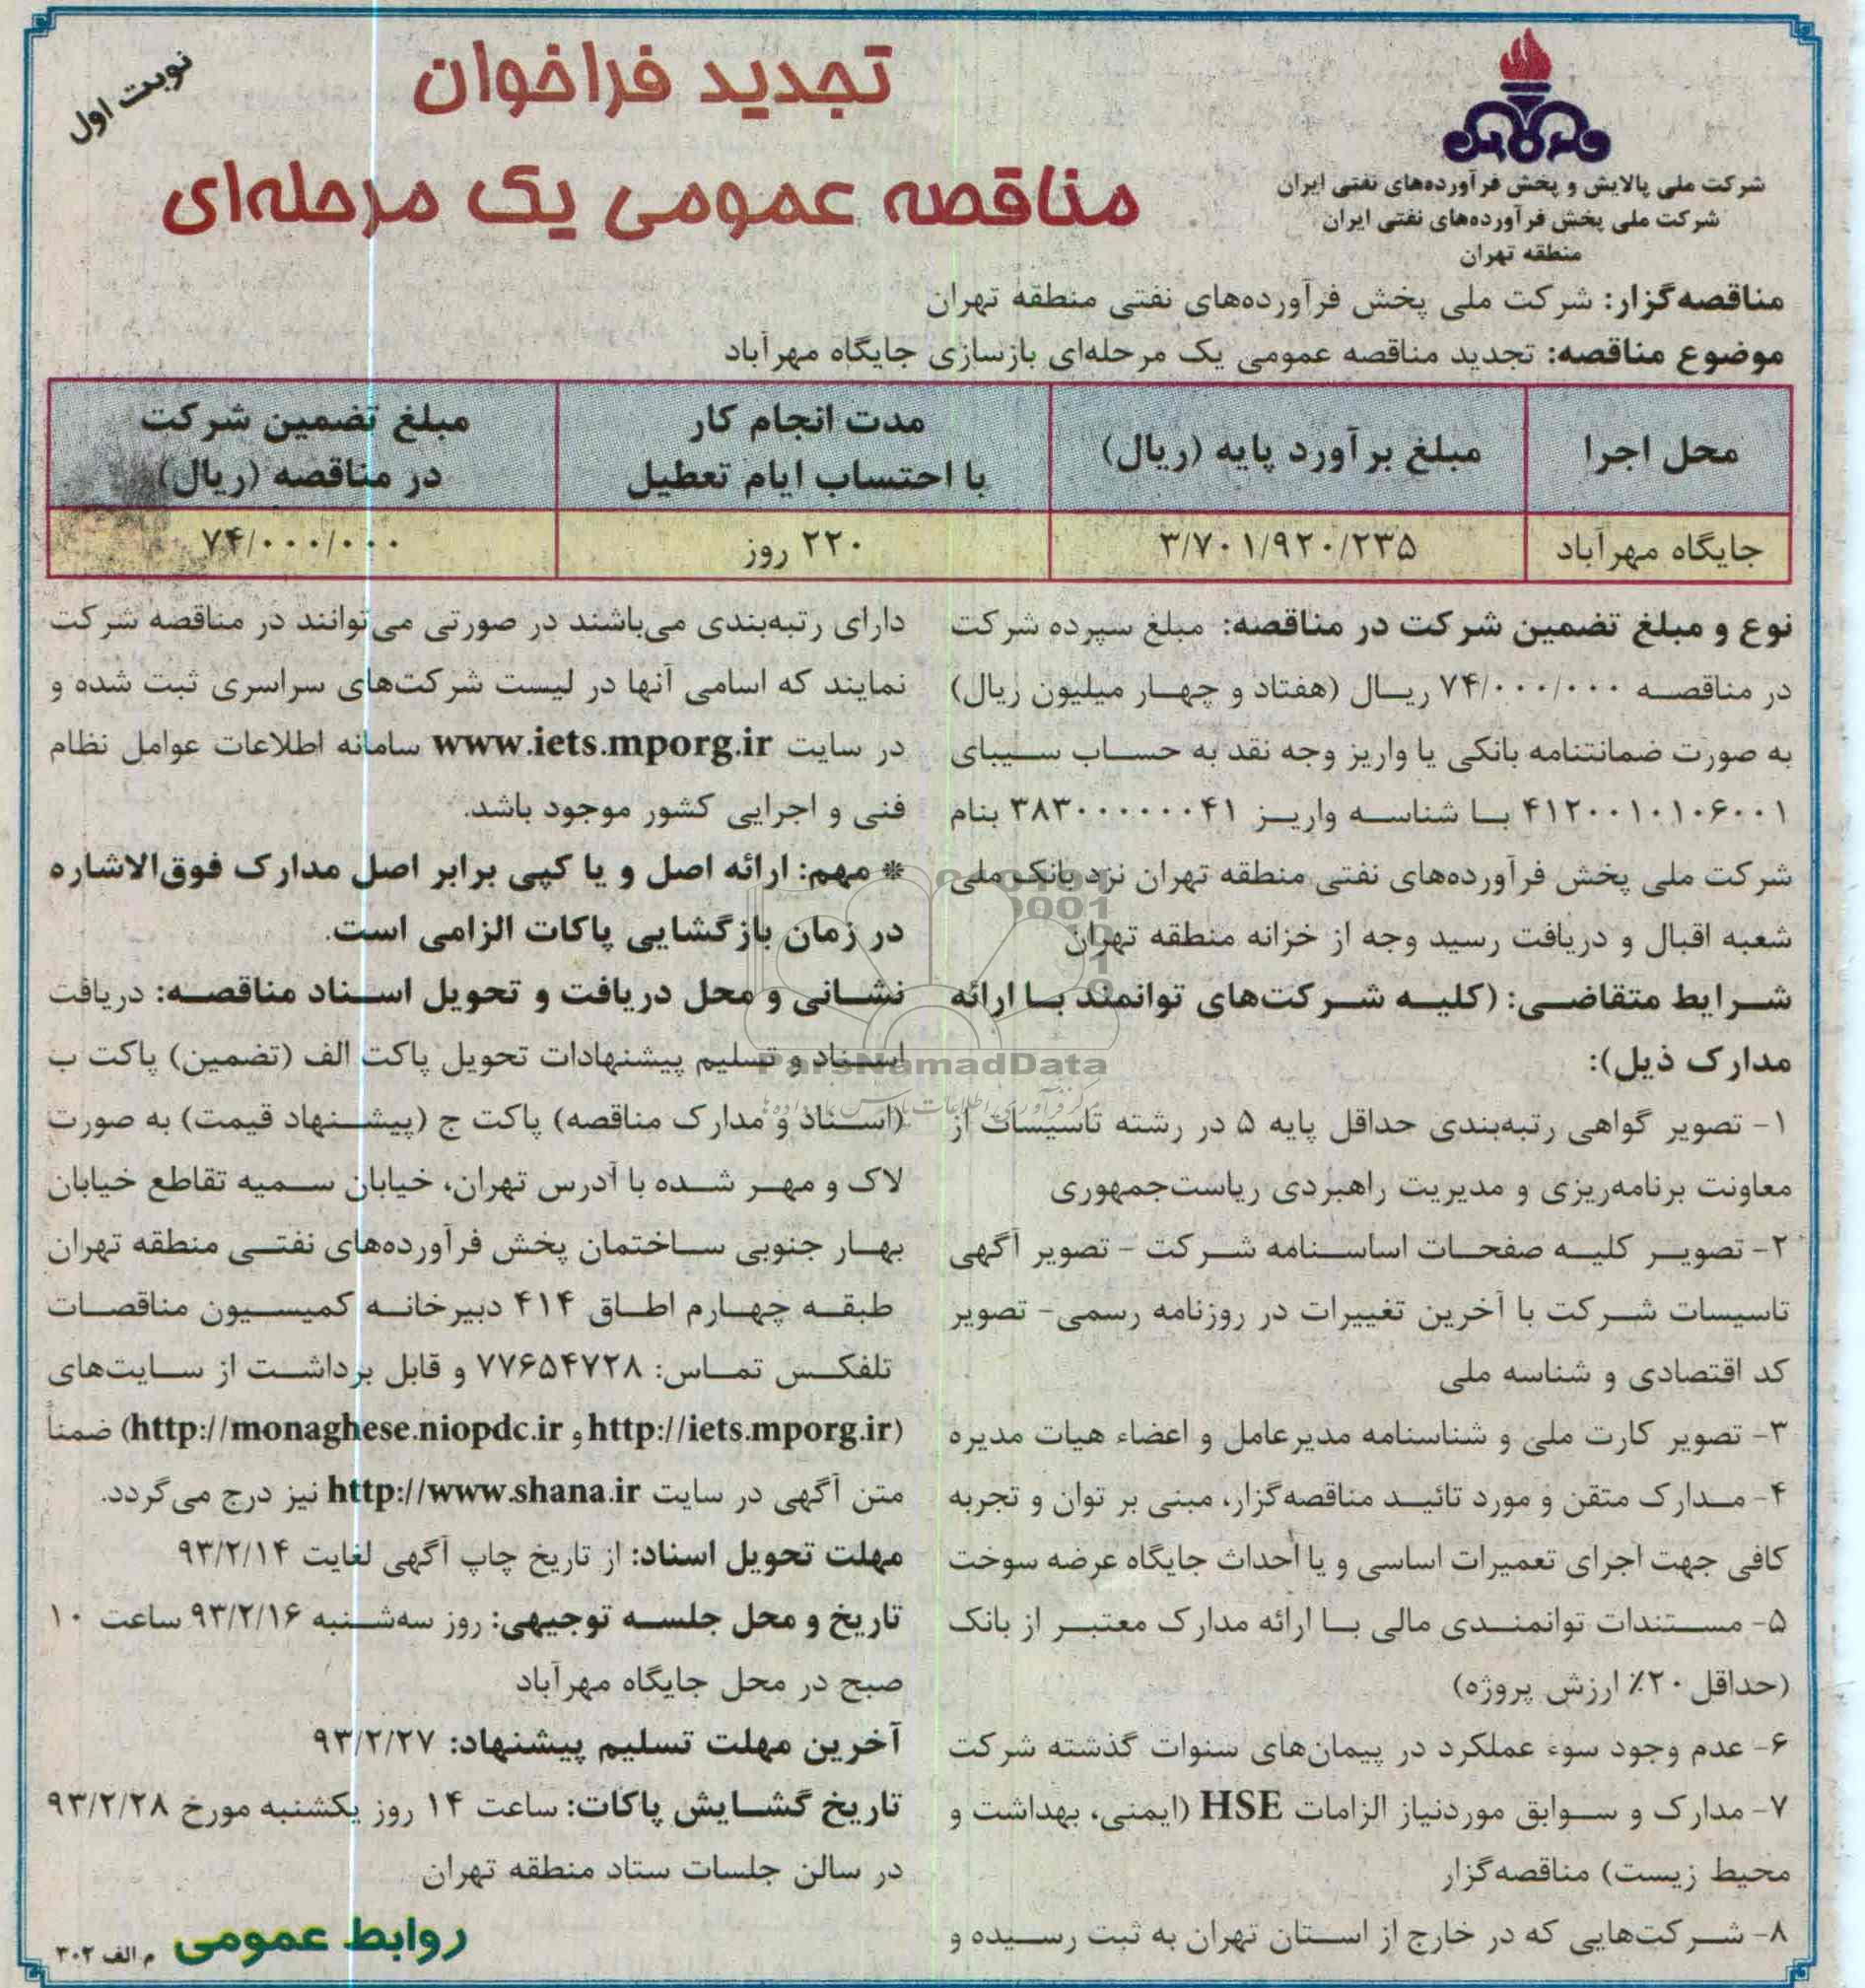 نوبت اول
تجدید فراخوان
مناقصه عمومی یک مرحله‌ای
شرکت ملی پالایش و پخش فرآورده‌های نفتی ایران
شرکت ملی پخش فرآورده‌های نفتی ایران
منطقه تهران
مناقصه‌گزار: شرکت ملی پخش فرآورده‌های نفتی منطقه تهران
موضوع مناقصه: تجدید مناقصه عمومی یک مرحله‌ای بازسازی جایگاه مهرآباد
محل اجرا
مبلغ برآورد پایه (ریال)
مدت انجام کار
با احتساب ایام تعطیل
مبلغ تضمین شرکت
در مناقصه (ریال)
جایگاه مهرآباد
۳/۷۰۱/۹۲۰/۲۳۵
۲۲۰ روز
۷۴/۰۰۰/۰۰۰
نوع و مبلغ تضمین شرکت در مناقصه: مبلغ سپرده شرکت
در مناقصه ۷۴/۰۰۰/۰۰۰ ریال (هفتاد و چهار میلیون ریال)
به صورت ضمانتنامه بانکی یا واریز وجه نقد به حساب سیبای
۴۱۲۰۰۱۰۱۰۶۰۰۱ با شناسه واریز ۳۸۳۰۰۰۰۰۰۴۱ بنام
شرکت ملی پخش فرآورده‌های نفتی منطقه تهران نزد بانک ملی
شعبه اقبال و دریافت رسید وجه از خزانه منطقه تهران
شرایط متقاضی: (کلیه شرکت‌های توانمند با ارائه
مدارک ذیل):
۱- تصویر گواهی رتبه‌بندی حداقل پایه ۵ در رشته تاسیسات از
معاونت برنامه‌ریزی و مدیریت راهبردی ریاست‌جمهوری
۲- تصویر کلیه صفحات اساسنامه شرکت - تصویر آگهی
تاسیسات شرکت با آخرین تغییرات در روزنامه رسمی- تصویر
کد اقتصادی و شناسه ملی
۳- تصویر کارت ملی و شناسنامه مدیرعامل و اعضاء هیات مدیره
۴- مدارک متقن و مورد تائید مناقصه‌گزار، مبنی بر توان و تجربه
کافی جهت اجرای تعمیرات اساسی و یا احداث جایگاه عرضه سوخت
۵- مستندات توانمندی مالی با ارائه مدارک معتبر از بانک
(حداقل ۲۰٪ ارزش پروژه)
۶- عدم وجود سوء عملکرد در پیمان‌های سنوات گذشته شرکت
۷- مدارک و سوابق موردنیاز الزامات HSE (ایمنی، بهداشت و
محیط زیست) مناقصه‌گزار
۸- شرکت‌هایی که در خارج از استان تهران به ثبت رسیده و
دارای رتبه‌بندی می‌باشند در صورتی می‌توانند در مناقصه شرکت
نمایند که اسامی آنها در لیست شرکت‌های سراسری ثبت شده و
در سایت www.iets.mporg.ir سامانه اطلاعات عوامل نظام
فنی و اجرایی کشور موجود باشد.
* مهم: ارائه اصل و یا کپی برابر اصل مدارک فوق‌الاشاره
در زمان بازگشایی پاکات الزامی است.
نشانی و محل دریافت و تحویل اسناد مناقصه: دریافت
اسناد و تسلیم پیشنهادات تحویل پاکت الف (تضمین) پاکت ب
(اسناد و مدارک مناقصه) پاکت ج (پیشنهاد قیمت) به صورت
لاک و مهر شده با آدرس تهران، خیابان سمیه تقاطع خیابان
بهار جنوبی ساختمان پخش فرآورده‌های نفتی منطقه تهران
طبقه چهارم اطاق ۴۱۴ دبیرخانه کمیسیون مناقصات
تلفکس تماس: ۷۷۶۵۴۷۲۸ و قابل برداشت از سایت‌های
(http://iets.mporg.ir و http://monaghese.niopdc.ir) ضمناً
متن آگهی در سایت http://www.shana.ir نیز درج می‌گردد.
مهلت تحویل اسناد: از تاریخ چاپ آگهی لغایت ۹۳/۲/۱۴
تاریخ و محل جلسه توجیهی: روز سه‌شنبه ۹۳/۲/۱۶ ساعت ۱۰
صبح در محل جایگاه مهرآباد
آخرین مهلت تسلیم پیشنهاد: ۹۳/۲/۲۷
تاریخ گشایش پاکات: ساعت ۱۴ روز یکشنبه مورخ ۹۳/۲/۲۸
در سالن جلسات ستاد منطقه تهران
روابط عمومی
م الف ۳۰۲
ParsNamadData